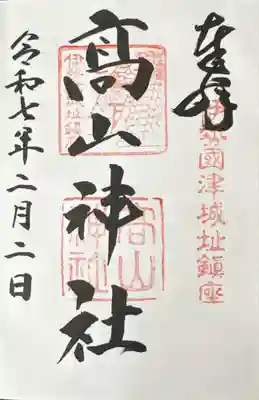 奉拝
伊勢國津城址鎮座
髙山神社
高山神社
令和七年二月二日